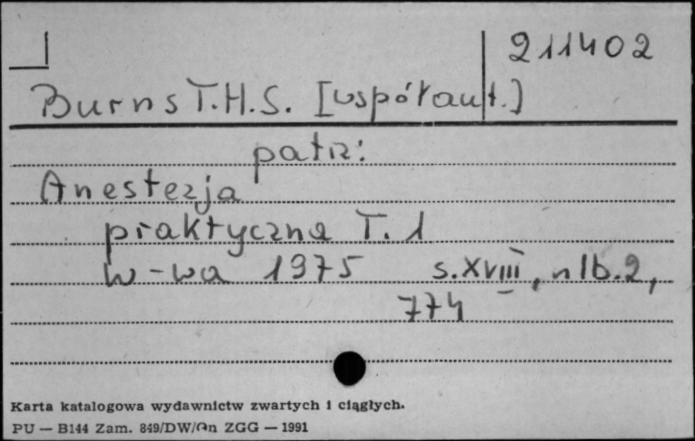 211402
Burns T.H.S. [współaut.]
patrz:
Anestezja
praktyczna T. 1
W-wa 1975 s. XVIII, nlb. 2,
774
Karta katalogowa wydawnictw zwartych i ciągłych.
PU — B144 Zam. 849/DW/On ZGG — 1991